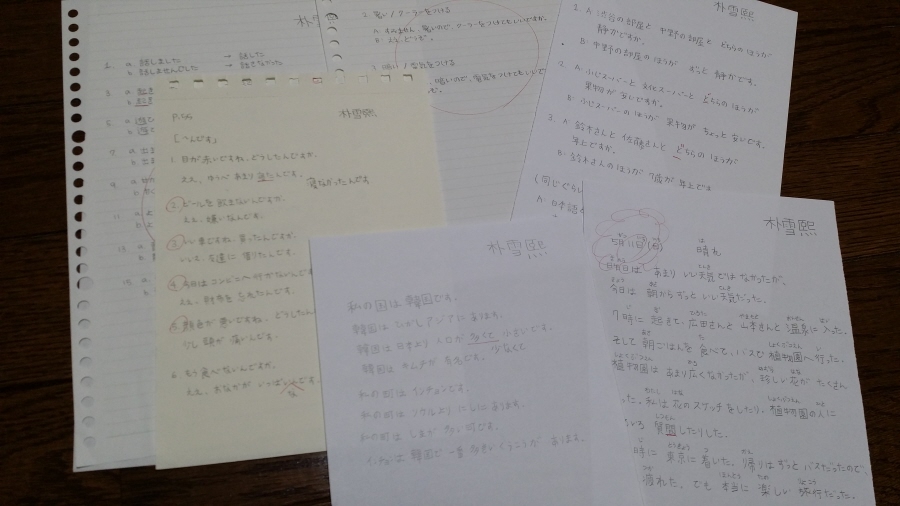 朴雪熙
a. 話しました → 話した
b. 話しませんでした → 話さなかった
2. 暑い / クーラーをつける
A: すみません、暑いので、クーラーをつけてもいいですか。
B: ええ、どうぞ。
3. 暗い / 電気をつける
暗いので、電気をつけてもいいで
朴雪熙
A: 渋谷の部屋と 中野の部屋と どちらのほうが
静かですか。
B: 中野の部屋のほうが ずっと 静かです。
2. A: ふじスーパーと
スーパーと どちらのほうが
果物が 多いですか。
B: ふじスーパーのほうが 果物が ちょっと 多いです。
3. A: 鈴木さんと 佐藤さんと どちらの ほうが
年上ですか。
B: 鈴木さんのほうが 7歳が 年上です
(同じぐらい
A: 日本語
P.56
朴雪熙
「~んです」
1. 目が赤いですね。どうしたんですか。
ええ、ゆうべ あまり
んです。
寝なかったんです
2. ビールを飲まないんですか。
ええ、嫌いなんです。
3. いい車ですね。買ったんですか。
いいえ、友達に 借りたんです。
4. 今日は コンビニへ 行かないんで
ええ、財布を 忘れたんです。
5. 顔色が 悪いですね。どうしたん
少し 頭が 痛いんです。
6. もう 食べないんですか。
ええ、おなかが いっぱいんです。
な
朴雪熙
私の国は 韓国です。
韓国は ひがしアジアに あります。
韓国は 日本より 人口が 多くて 小さいです。
少なくて
韓国は キムチが 有名です。
私の町は インチョンです。
私の町は ソウルより にしに あります。
私の町は しまが 多い 町です。
インチョンは 韓国で 一番 大きい くうこうが あります。
朴雪熙
5月11日(日) 晴れ
昨日は あまり いい天気では なかったが、
今日は 朝から ずっと いい 天気だった。
7時に 起きて、広田さんと 山本さんと 温泉に 入った。
そして 朝ごはんを 食べて、バスで 植物園へ 行った。
植物園は あまり 広くなかったが、珍しい 花が たくさん
った。私は 花の スケッチを したり、植物園の人に
いろ 質問したりした。
時に 東京に 着いた。帰りは ずっと バスだったので、
疲れた。でも 本当に 楽しい 旅行だった。